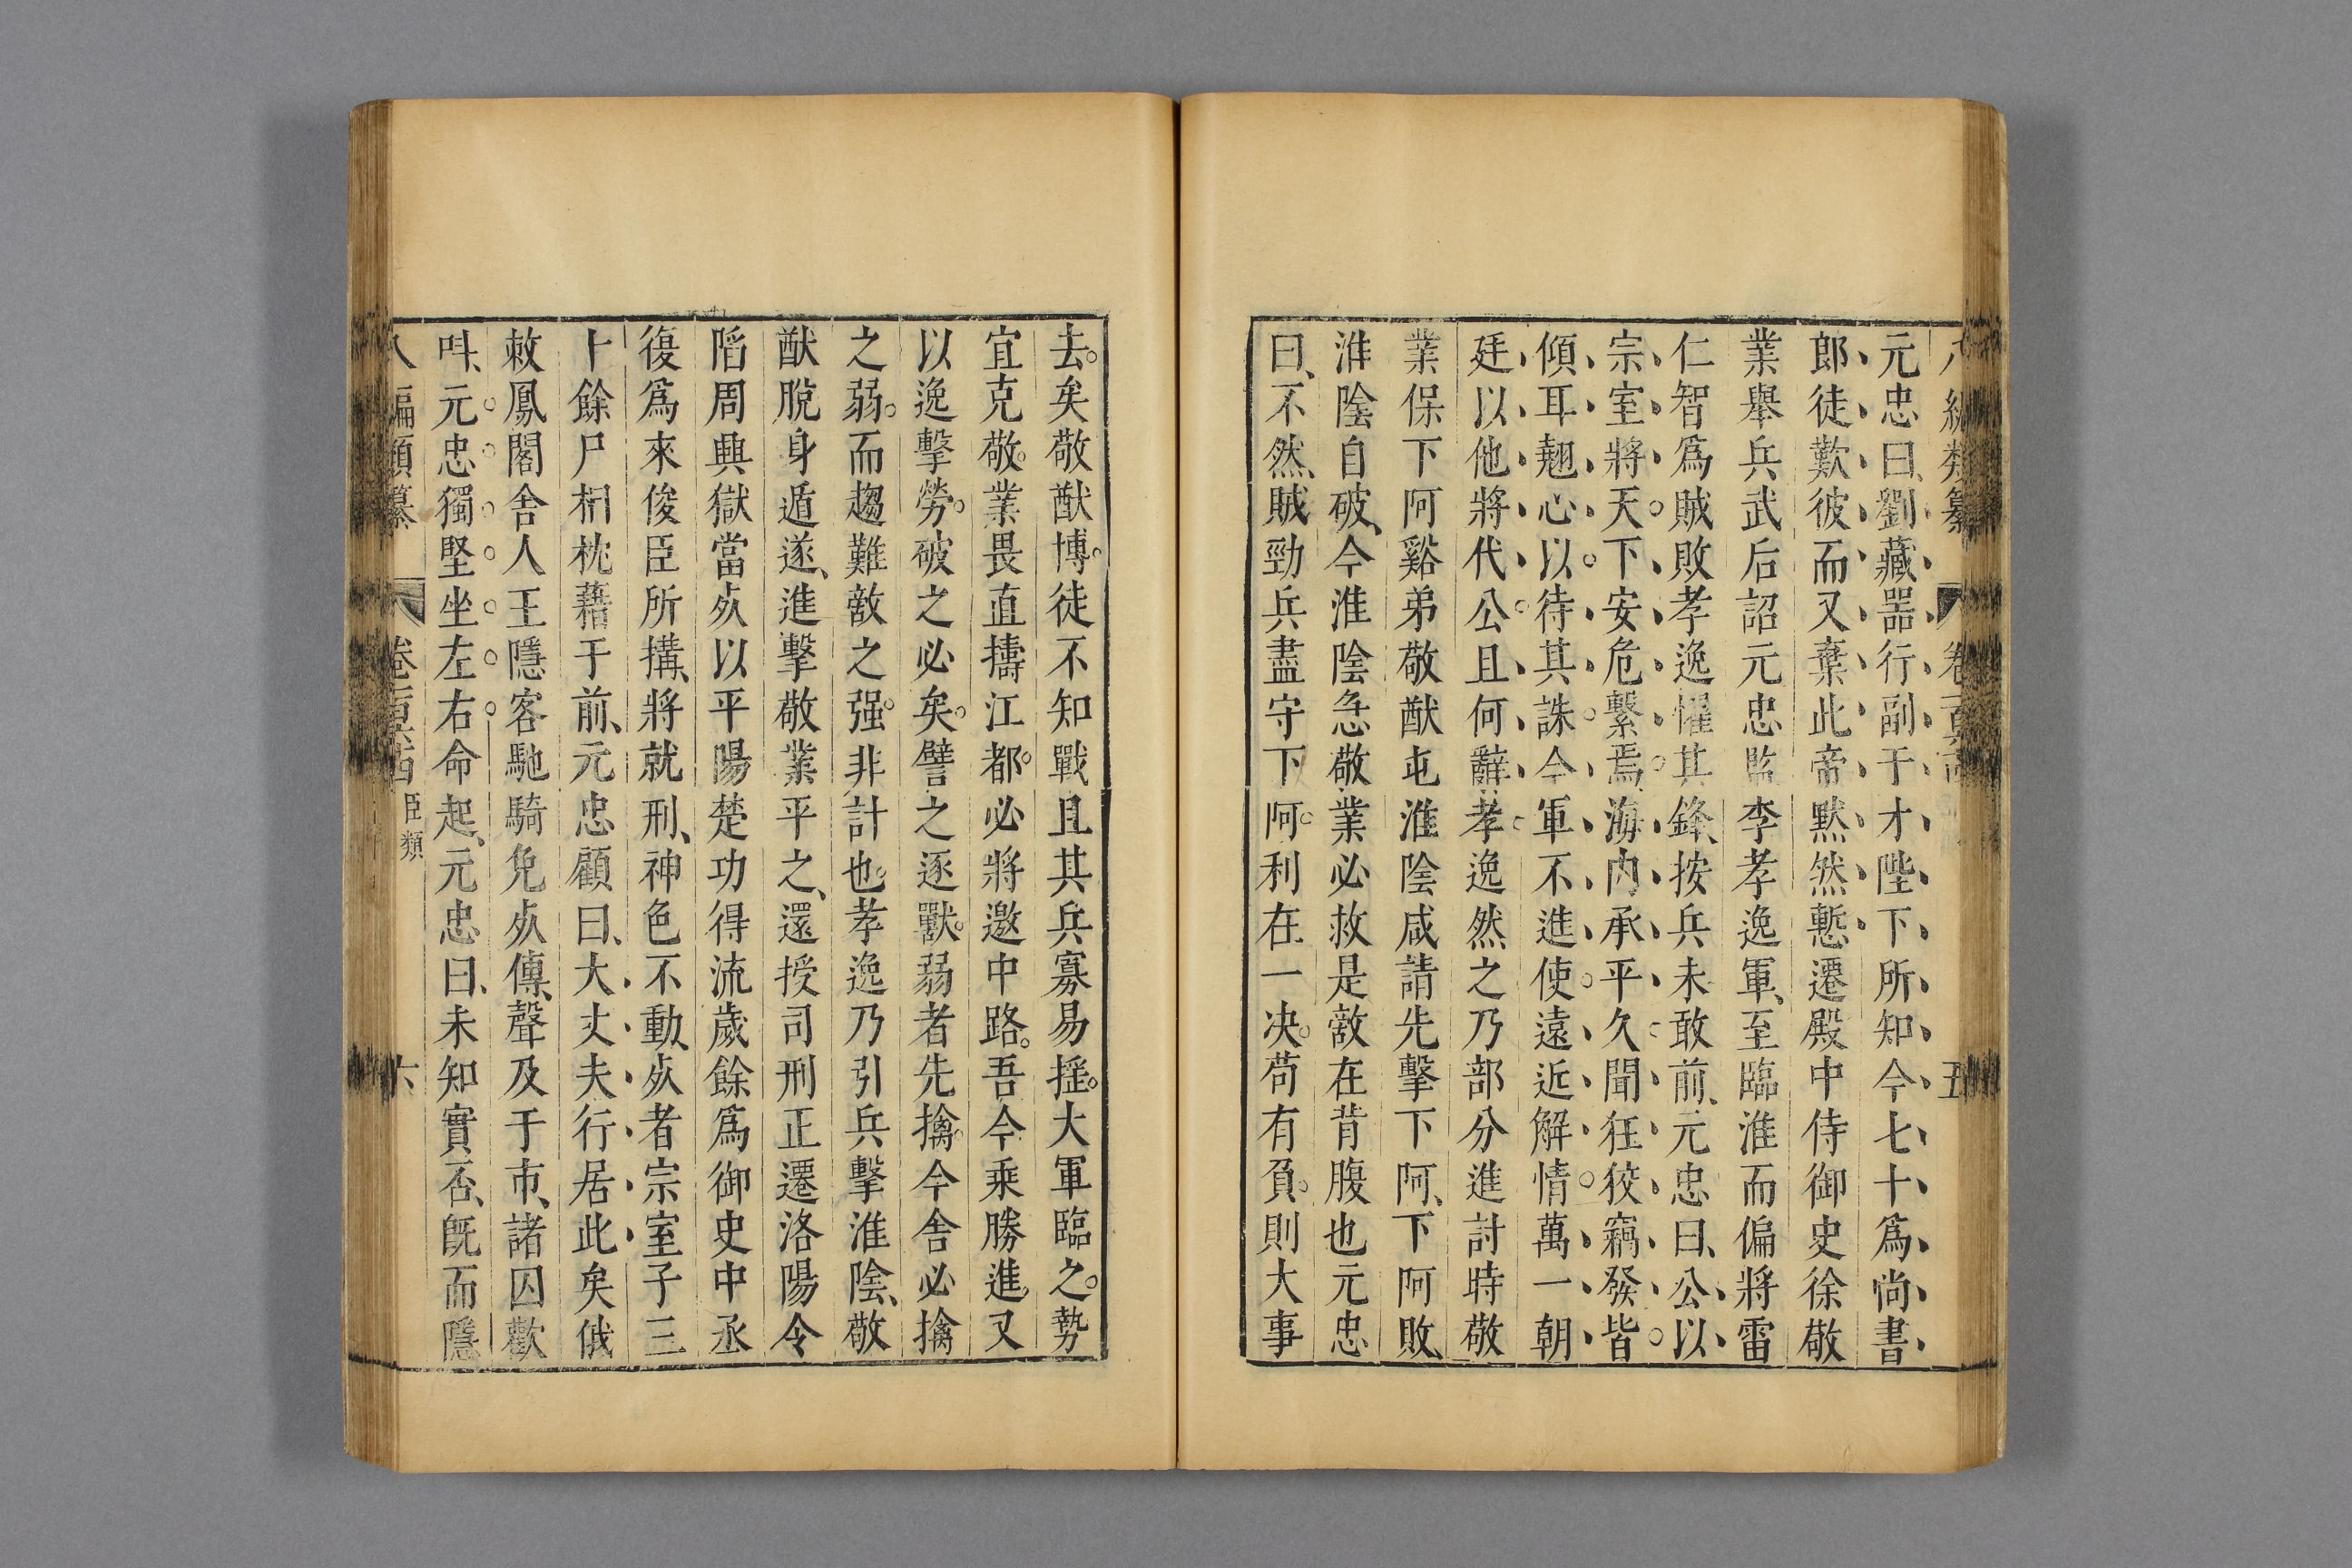 元忠曰劉藏器行副于才陛下所知今七十爲尚書
郎徒歎彼而又棄此帝默然慙遷殿中侍御史徐敬
業舉兵武后詔元忠監李孝逸軍至臨淮而偏將雷
仁智爲賊敗孝逸懼其鋒按兵未敢前元忠曰公以
宗室將天下安危繫焉海内承平久聞狂狡竊發皆
傾耳翹心以待其誅今軍不進使遠近解情萬一朝
廷以他將代公且何辭孝逸然之乃部分進討時敬
業保下阿谿弟敬猷屯淮陰咸請先擊下阿下阿敗
淮陰自破今淮陰急敬業必救是敵在背腹也元忠
曰不然賊勁兵盡守下阿利在一决苟有負則大事
去矣敬猷博徒不知戰且其兵寡易摇大軍臨之勢
宜克敬業畏直擣江都必將邀中路吾今乘勝進又
以逸擊勞破之必矣譬之逐獸弱者先擒今舍必擒
之弱而趨難敵之强非計也孝逸乃引兵擊淮陰敬
猷脫身遁遂進擊敬業平之還授司刑正遷洛陽令
陷周興獄當㱕以平陽楚功得流歲餘爲御史中丞
復爲來俊臣所搆將就刑神色不動㱕者宗室子三
十餘尸相枕藉于前元忠顧曰大丈夫行居此矣俄
敕鳳閣舍人王隱客馳騎免㱕傳聲及于市諸囚歡
呌元忠獨堅坐左右命起元忠曰未知實否既而隱
八編類纂 卷 臣類 六